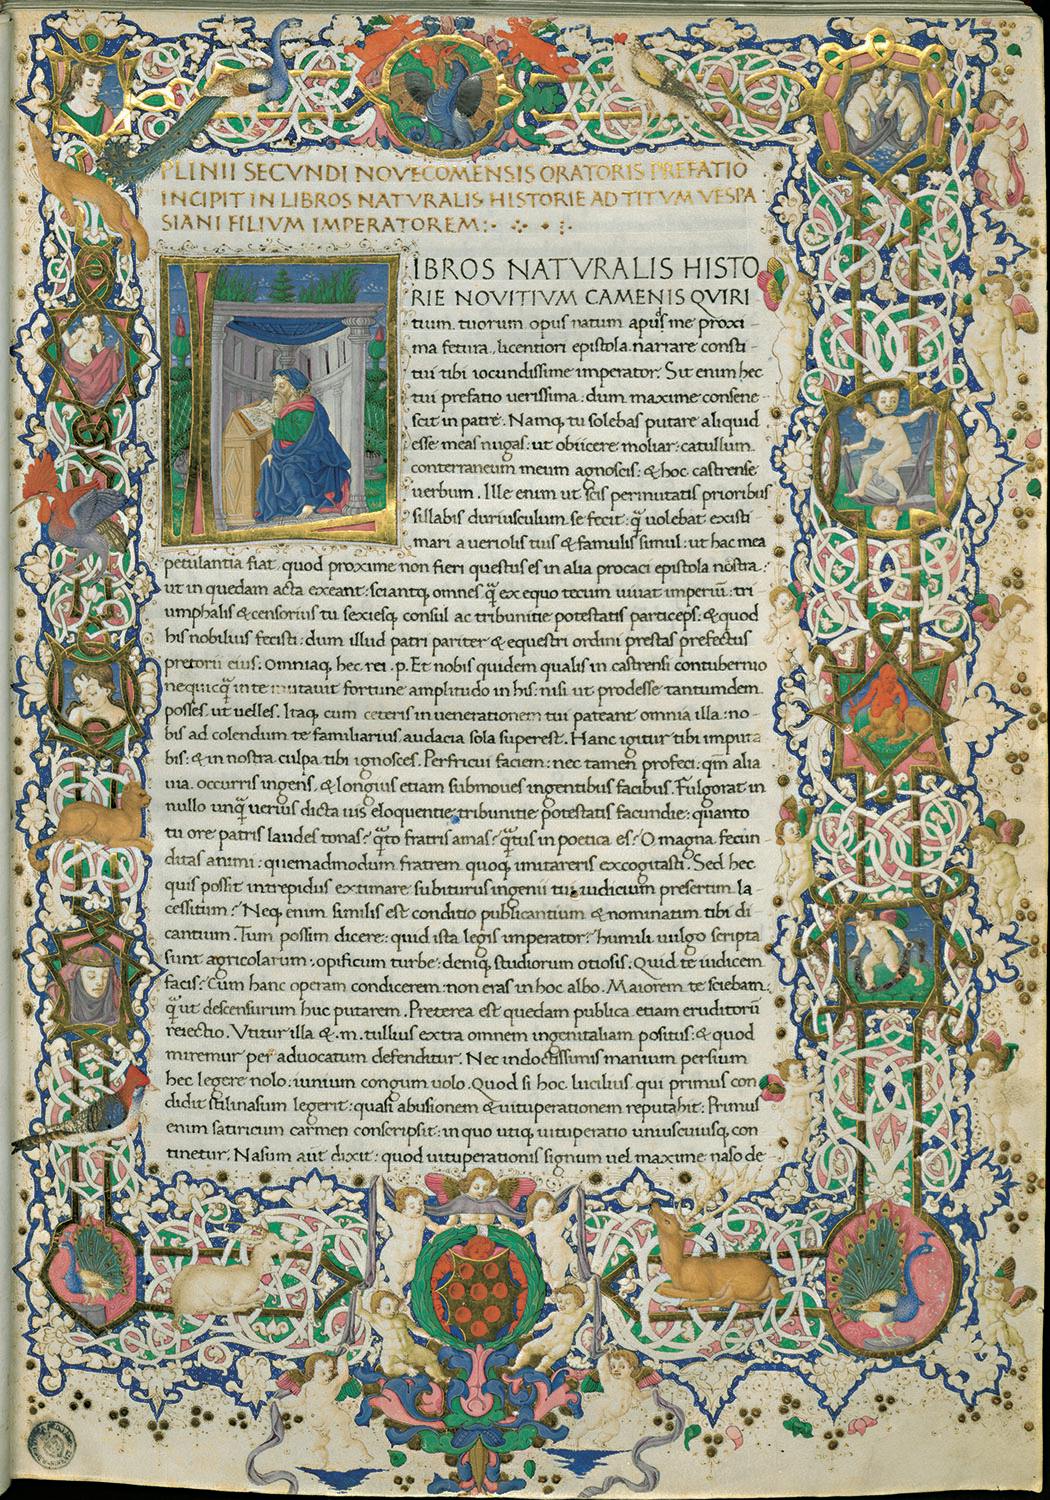 PLINII SECVNDI NOVECOMENSIS ORATORIS PREFATIO
INCIPIT IN LIBROS NATVRALIS HISTORIE AD TITVM VESPA
SIANI FILIVM IMPERATOREM:
IBROS NATVRALIS HISTO
RIE NOVITIVM CAMENIS QVIRI
tium tuorum opus natum apud me proxi-
ma fetura. licentiori epistola narrare consti-
tui tibi iocundissime imperator. Sit enim hec
tui prefatio uerissima: dum maxime consene-
scit in patre. Namq; tu solebas putare aliquid
esse meas nugas: ut obiicere moliar: catullum
conterraneum meum agnoscis: & hoc castrense
uerbum. Ille enim ut scis permutatis prioribus
sillabis duriusculum se fecit: q̃ uolebat existi-
mari a ueriolis tuis & famulis simul: ut hac mea
petulantia fiat quod proxime non fieri questus es in alia procaci epistola nostra:
ut in quedam acta exeant: sciantq; omnes q̃ ex equo tecum uiuat imperiũ: tri
umphalis & censorius tu sexiesq; consul ac tribunitie potestatis particeps: & quod
his nobilius fecisti: dum illud patri pariter & equestri ordini prestas prefectus
pretorii eius: Omniaq; hec rei .p. Et nobis quidem qualis in castrensi contubernio
nequicq̃ in te mutauit fortune amplitudo in his: nisi ut prodesse tantumdem
posses: ut uelles. Itaq; cum ceteris in uenerationem tui pateant omnia illa: no-
bis ad colendum te familiarius audacia sola superest. Hanc igitur tibi imputa
bis: & in nostra culpa tibi ignosces. Perfricui faciem: nec tamen profeci: qm̃ alia
uia. occurris ingens. & longius etiam submoues ingentibus facibus. Fulgorat in
nullo unq̃ uerius dicta uis eloquentie: tribunitie potestatis facundie: quanto
tu ore patris laudes tonas: q̃to fratris amas: q̃tus in poetica es: O magna fecun
ditas animi: quemadmodum fratrem quoq; imitareris excogitasti. Sed hec
quis possit intrepidus extimare: subiturus ingenii tui iudicium presertim la-
cessitum: Neq; enim similis est conditio publicantium & nominatim tibi di-
cantium. Tum possim dicere: quid ista legis imperator: humili uulgo scripta
sunt agricolarum: opificum turbe: deniq; studiorum otiosis. Quid te iudicem
facis: Cum hanc operam condicerem: non eras in hoc albo. Maiorem te sciebam.
q̃ ut descensurum huc putarem. Preterea est quedam publica etiam eruditorũ
reiectio. Vtitur illa & .m. tullius extra omnem ingenitaliam positus: & quod
miremur per aduocatum defenditur. Nec indoctissimis manium persium
hec legere nolo: iunium congum uolo. Quod si hoc lucilius qui primus con
didit stili nasum legerit: quasi abusionem & uituperationem reputabit: Primus
enim satiricum carmen conscripsit: in quo utiq; uituperatio uniuscuiusq; con
tinetur. Nasum aũt dixit: quod uituperationis signum uel maxime naso de